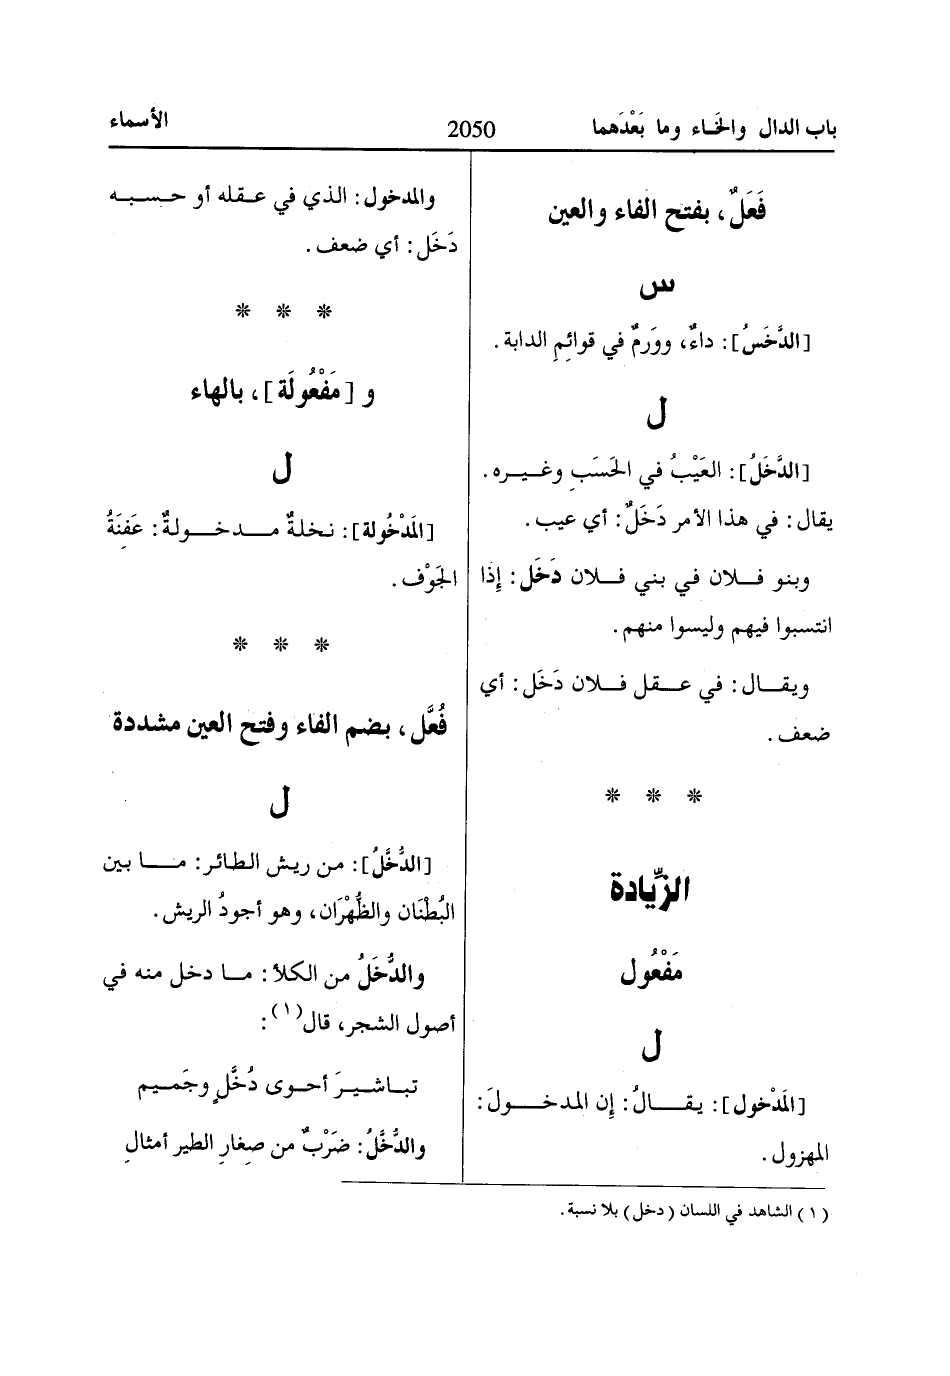 باب الدال والخاء وما بَعْدَهما
2050
الأسماء
فَعَلٌ، بفتح الفاء والعين
س
[الدَّخَسُ]: داءٌ، وورَمٌ في قوائمِ الدابة.
ل
[الدَّخَلُ]: العَيْبُ في الحَسَبِ وغيره.
يقال: في هذا الأمر دَخَلٌ: أي عيب.
وبنو فلان في بني فلان دَخَل: إذا
انتسبوا فيهم وليسوا منهم.
ويقال: في عقل فلان دَخَل: أي
ضعف.
* * *
الزِّيادة
مَفْعُول
ل
[المَدْخول]: يقالُ: إن المدخولَ:
المهزول.
والمدخول: الذي في عقله أو حسبه
دَخَل: أي ضعف.
* * *
و [مَفْعُولَة]، بالهاء
ل
[المَدْخُولة]: نخلةٌ مدخولةٌ: عَفِنَةُ
الجَوْف.
* * *
فُعَّل، بضم الفاء وفتح العين مشددة
ل
[الدُّخَّلُ]: من ريش الطائر: ما بين
البُطْنَان والظُّهْرَان، وهو أجودُ الريش.
والدُّخَّلُ من الكلأ: ما دخل منه في
أصول الشجر، قال(١):
تباشيرَ أحوى دُخَّلٍ وجَميم
والدُّخَّلُ: ضَرْبٌ من صِغارِ الطير أمثالِ
(١) الشاهد في اللسان (دخل) بلا نسبة.